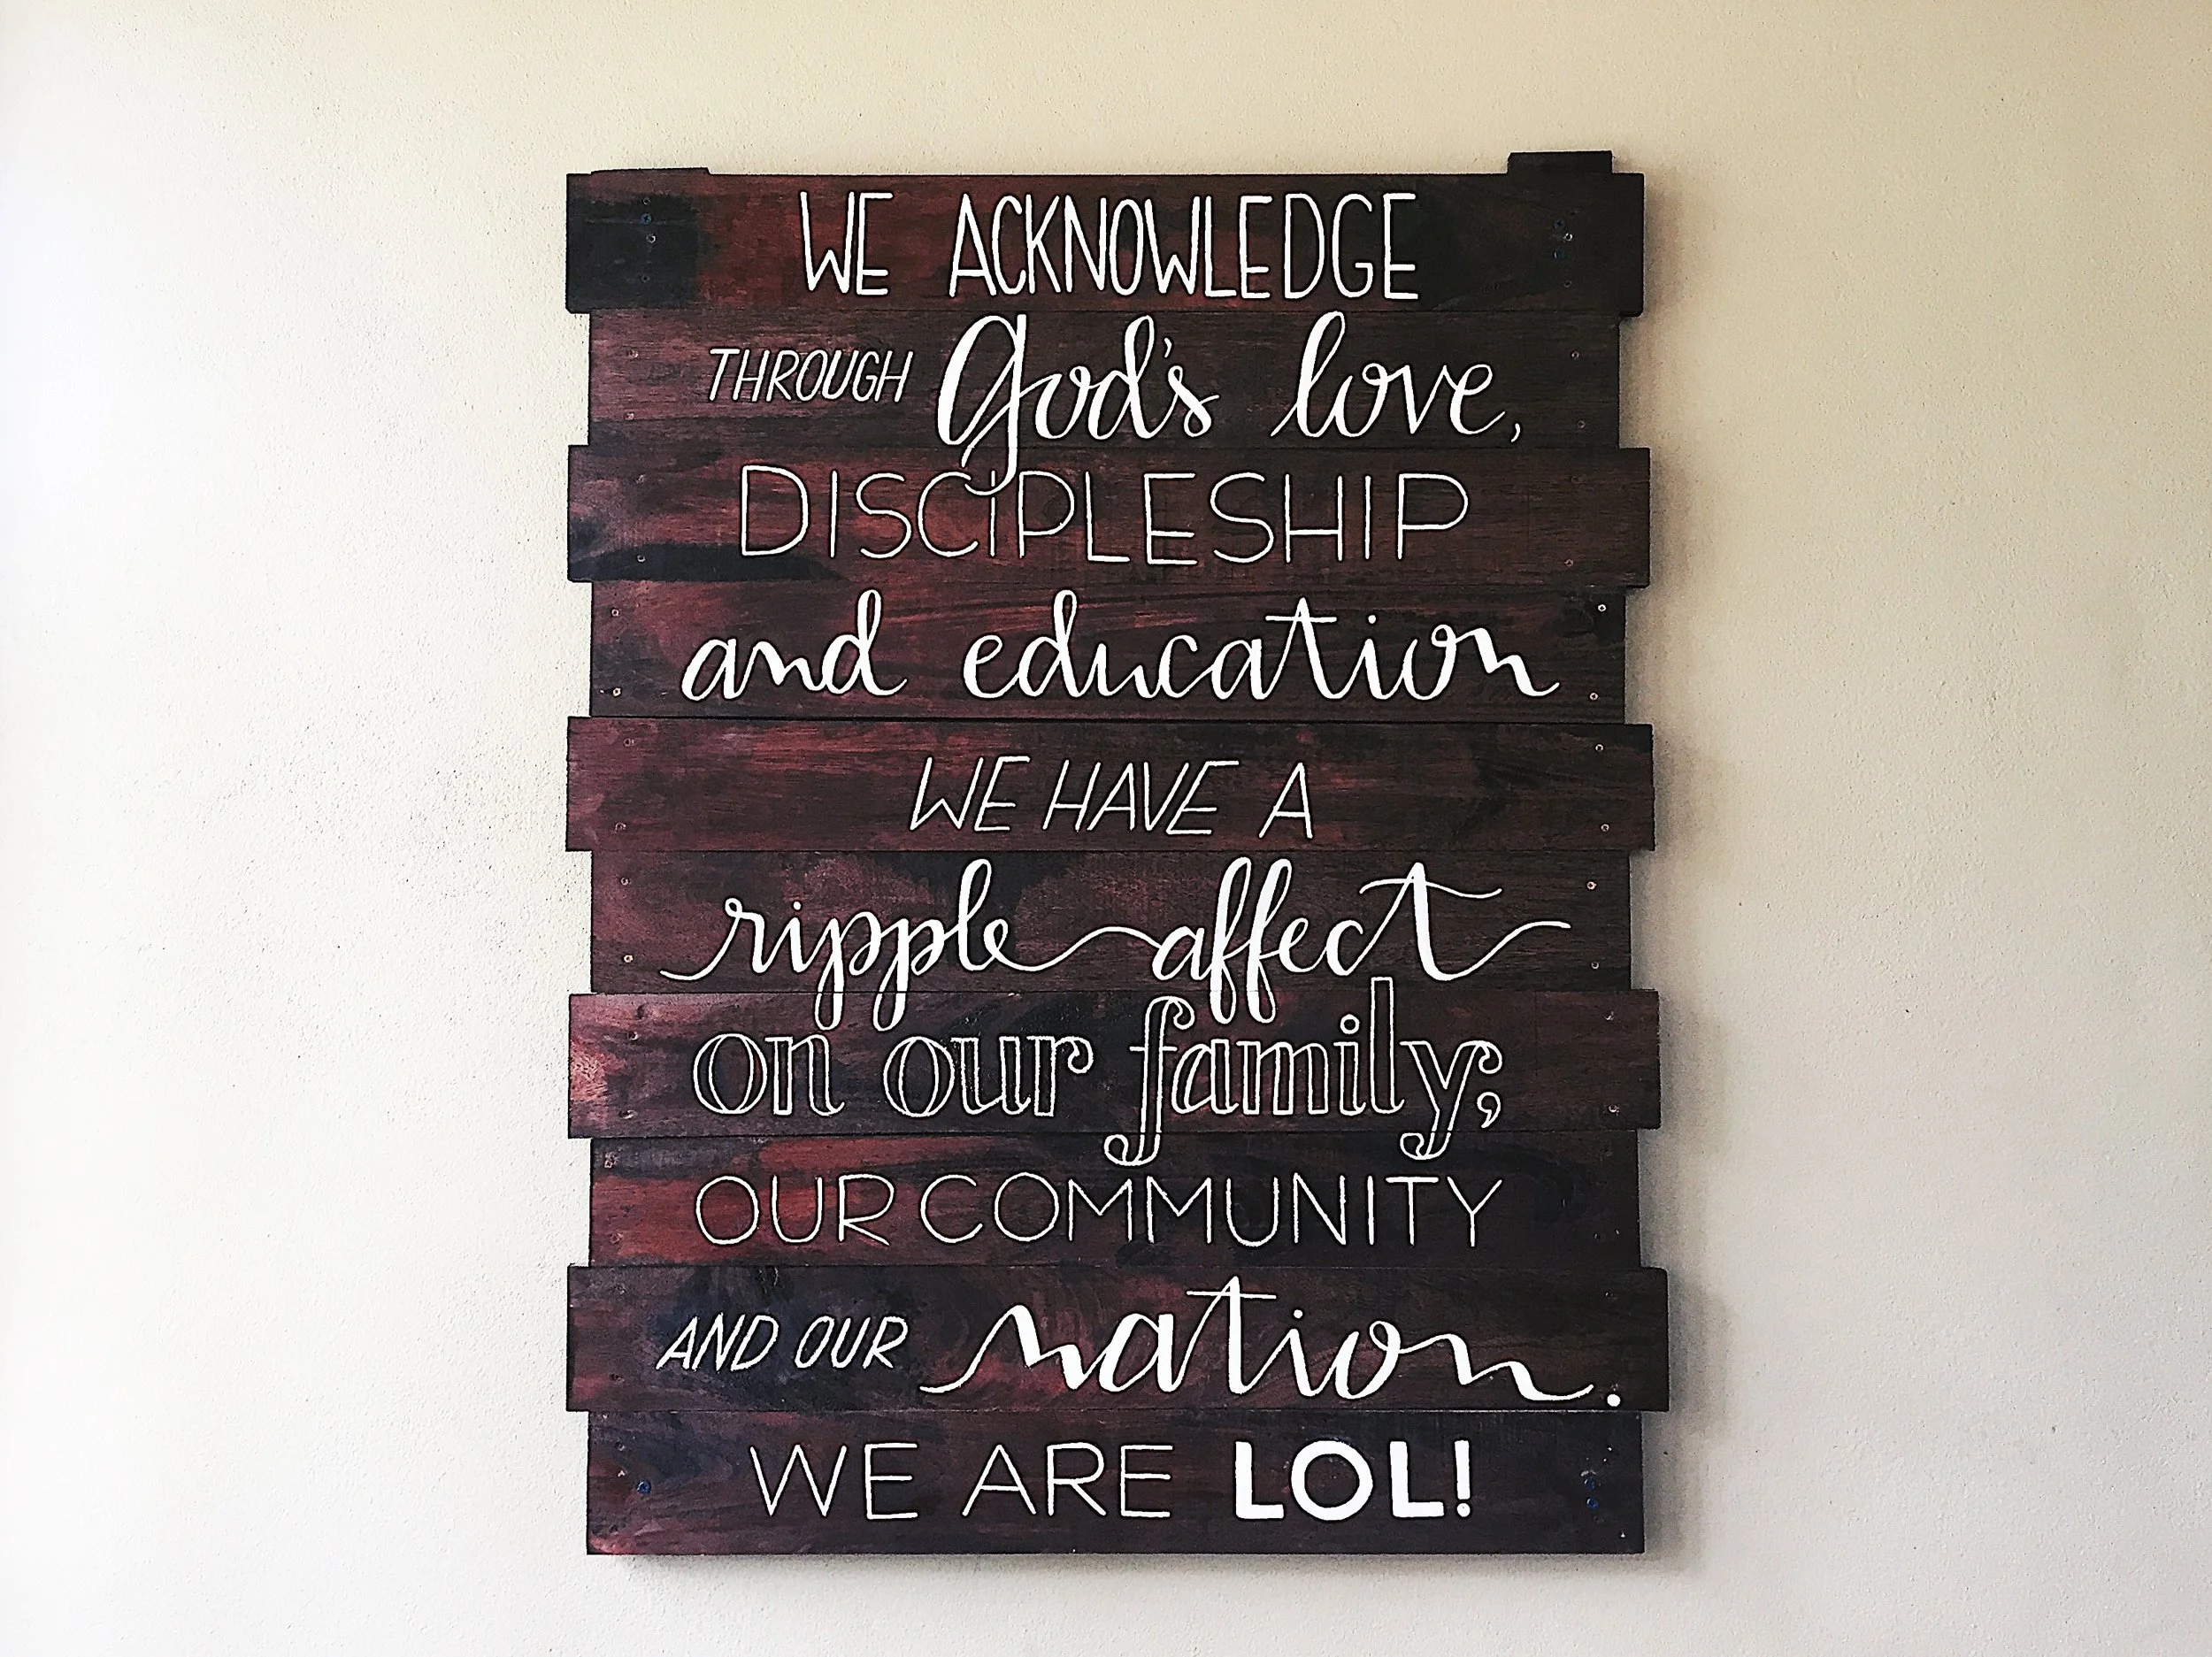 WE ACKNOWLEDGE
THROUGH God's love,
DISCIPLESHIP
and education
WE HAVE A
ripple affect
on our family;
OUR COMMUNITY
AND OUR nation.
WE ARE LOL!